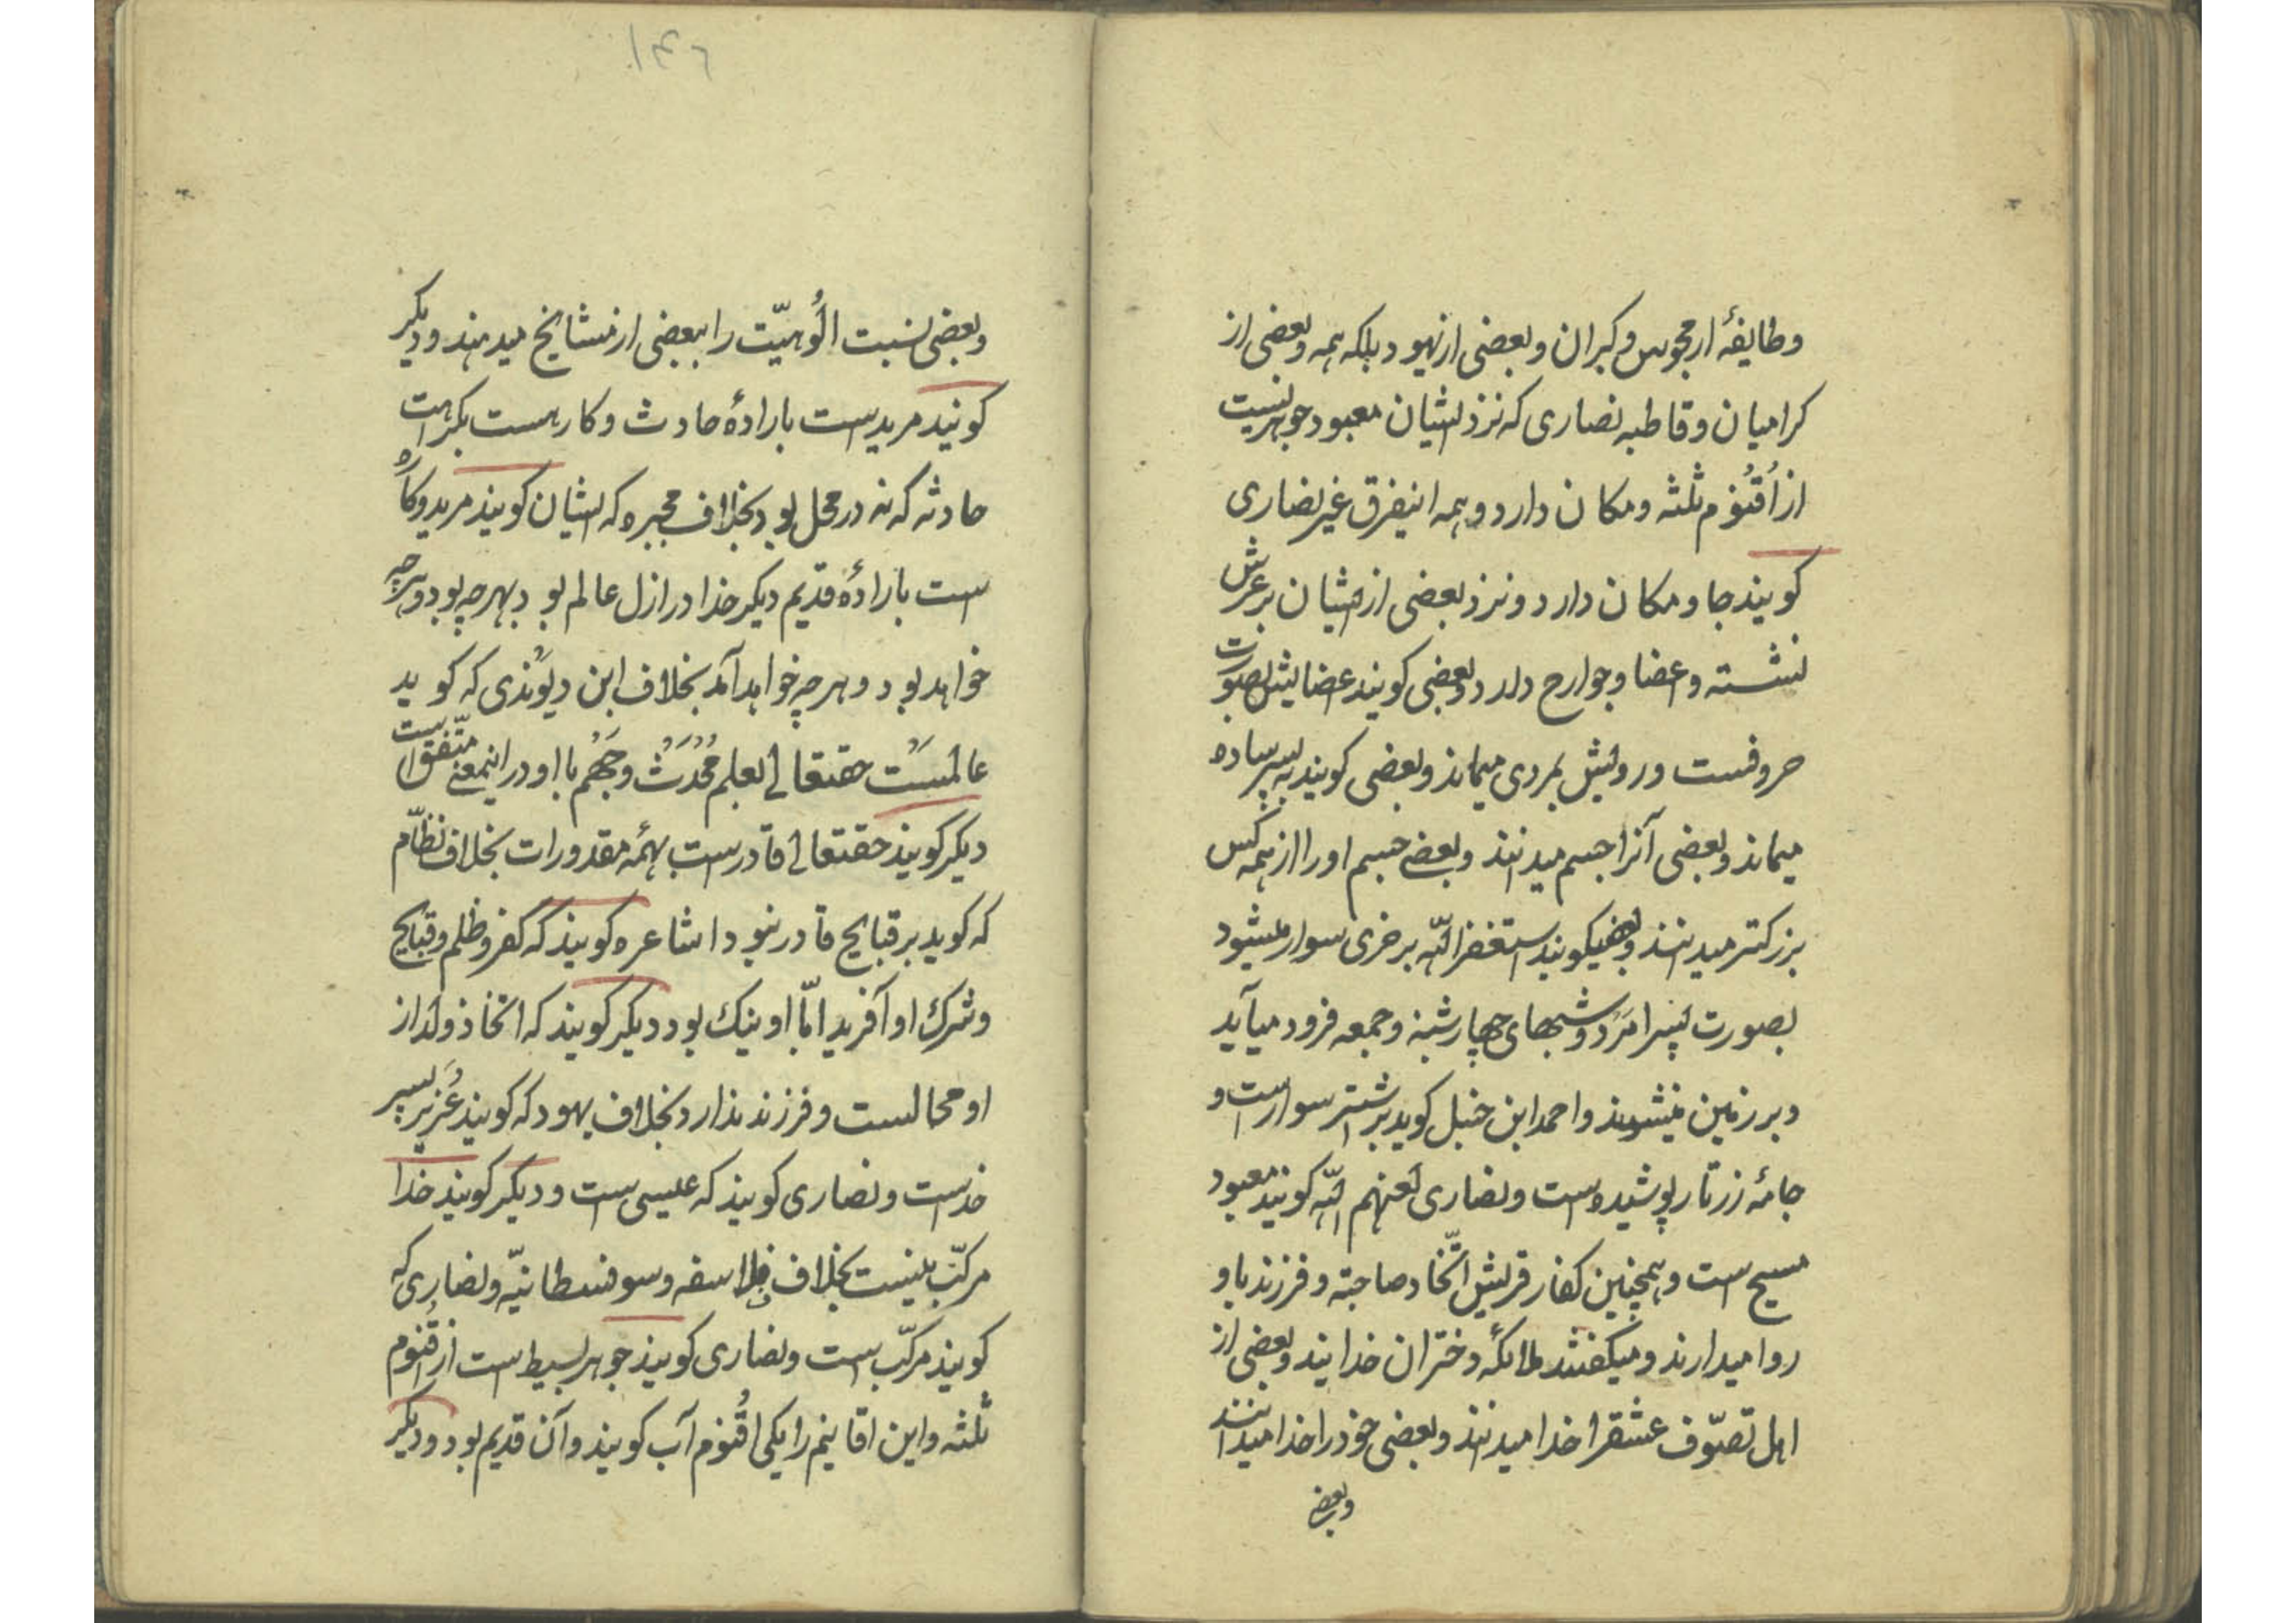 وطایفهٔ از مجوس و کبران و بعضی از یهود بلکه همه و بعضی از
کرامیان و قاطبه نصاری که نزد ایشان معبود جوهریست
از اُقنُوم ثلثه و مکان دارد و همه اینفرق غیر نصاری
کویند جا و مکان دارد و نزد بعضی ازیشان بر عرش
نشسته و اعضا و جوارح دارد و بعضی کویند اعضایش بصورت
حروفست و رویش بمردی میماند و بعضی کویند به پسر ساده
میماند و بعضی آنرا جسم میدانند و بعضی جسم او را از همه کس
بزرکتر میدانند و بعضی میکویند استغفر الله بر خری سوار میشود
بصورت پسر امرَد و شبهای چهارشنبه و جمعه فرود میآید
و بر زمین و احمد ابن حنبل کوید بر شتر سوار است و
جامهٔ زرتار پوشیده است و نصاری لعنهم الله کویند معبود
مسیح است و همچنین کفار قریش اتّخاد صاحبته و فرزند باو
روا میدارند و میکفتند ملائکه دختران خدایند و بعضی از
اهل تصوّف عشقرا خدا میدانند و بعضی خود را خدا میدانند
و بعضی
۱۴۶
و بعضی نسبت الُوهیّت را ببعضی از مشایخ میدهند و دیکر
کویند مرید است بارادهٔ حادث و کاره است بکراهت
حادثه که نه در محل بود بخلاف مجبره که ایشان کویند مرید و کاره
است بارادهٔ قدیم دیکر خدا در ازل عالم بود بهرچه بود و هرچه
خواهد بود و هرچه خواهد آمد بخلاف ابن دیوَندی که کوید
عالمسَت حقتعالی بعلم مُحْدَث و جَهْم با او در اینمعنی متّفق است
دیکر کویند حقتعالی قادر است بهمهٔ مقدورات بخلاف نظّام
که کوید بر قبایح قادر نبود اشاعره کویند که کفر و ظلم و قبایح
و شرک او آفرید امّا او نیک بود دیکر کویند که اتخاذ ولد از
او محالست و فرزند ندارد بخلاف یهود که کویند عُزیر پسر
خداست و نصاری کویند که عیسی است و دیکر کویند خدا
مرکّب نیست بخلاف فلاسفه و سوفسطانیّه و نصاری که
کویند مرکّب است و نصاری کویند جوهر بسیط است از اُقنُوم
ثلثه و این اقانیم را یکی اُقنُوم آب کویند و آن قدیم بود و دیکر